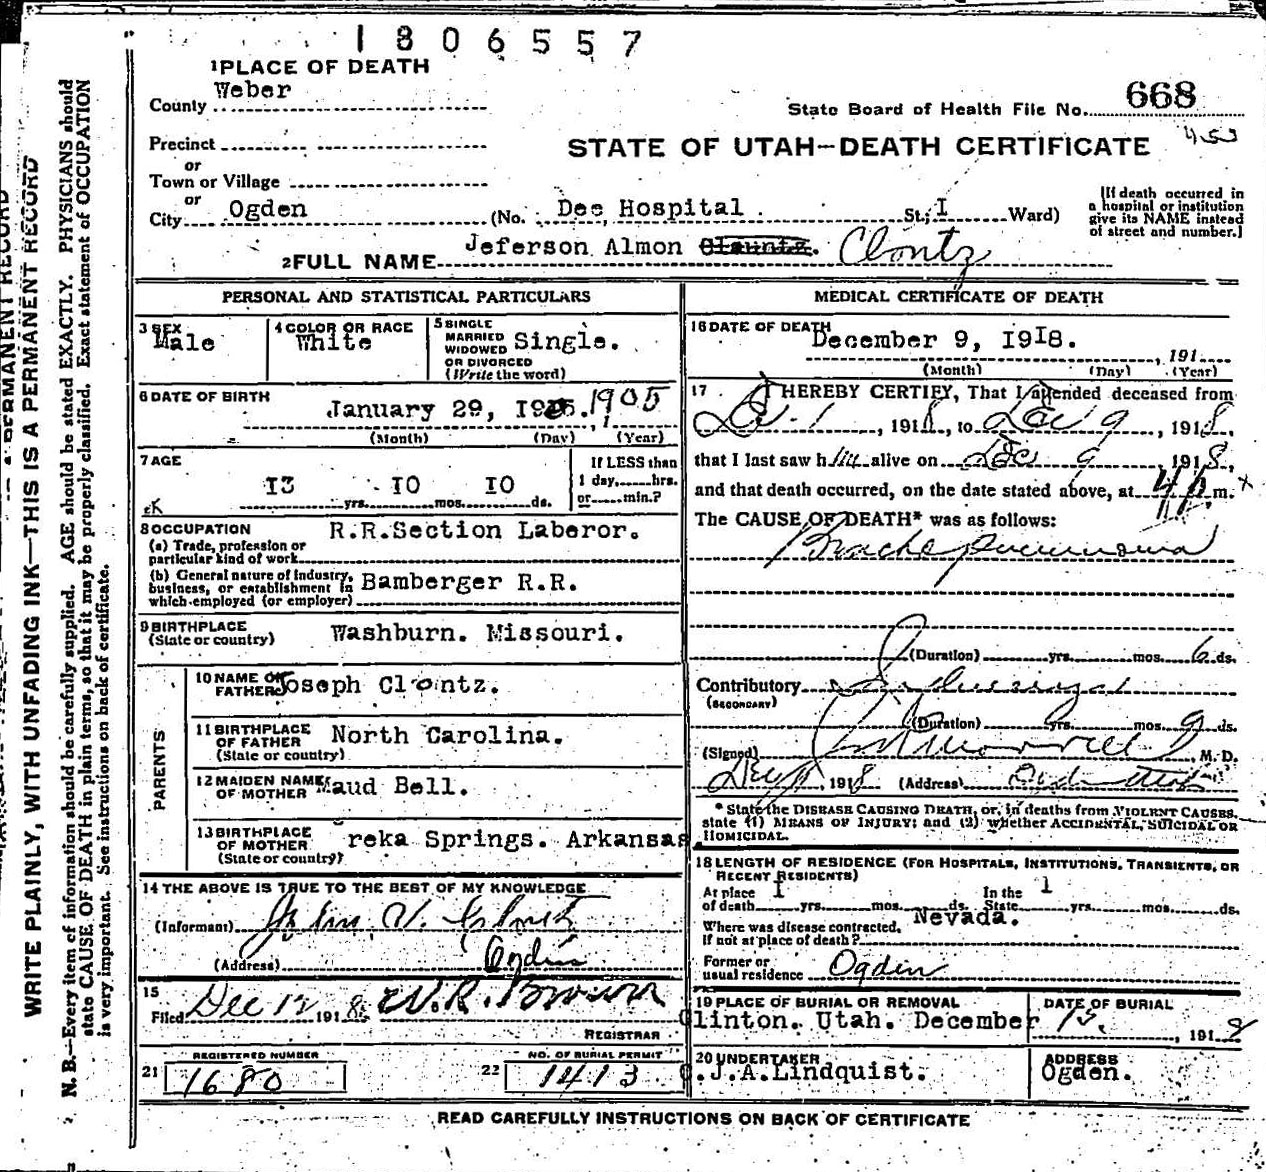 1806557
1 PLACE OF DEATH
Weber
County
State Board of Health File No. 668
453
Precinct
or
Town or Village
or
City Ogden (No. Dee Hospital. St; I Ward)
STATE OF UTAH—DEATH CERTIFICATE
[If death occurred in
a hospital or institution
give its NAME instead
of street and number.]
Jeferson Almon Clauntz. Clontz
2 FULL NAME
PERSONAL AND STATISTICAL PARTICULARS
3 SEX
Male
4 COLOR OR RACE
White
5 SINGLE
MARRIED
WIDOWED
OR DIVORCED
(Write the word)
Single.
6 DATE OF BIRTH
January 29, 1905
(Month) (Day) (Year)
7 AGE
I3 yrs. IO mos. IO ds.
If LESS than
1 day, hrs.
or min.?
8 OCCUPATION
R.R.Section Laberor.
(a) Trade, profession or
particular kind of work
(b) General nature of industry,
business, or establishment in
which employed (or employer)
Bamberger R.R.
9 BIRTHPLACE
(State or country)
Washburn. Missouri.
PARENTS
10 NAME OF
FATHER
Joseph Clontz.
11 BIRTHPLACE
OF FATHER
(State or country)
North Carolina.
12 MAIDEN NAME
OF MOTHER
Maud Bell.
13 BIRTHPLACE
OF MOTHER
(State or country)
reka Springs. Arkansas
14 THE ABOVE IS TRUE TO THE BEST OF MY KNOWLEDGE
(Informant) John V.
(Address) Ogden
15
Filed Dec 12 1918 W.R. Brown
REGISTRAR
REGISTERED NUMBER
21 1680
NO. OF BURIAL PERMIT
22 1413
MEDICAL CERTIFICATE OF DEATH
16 DATE OF DEATH
December 9, I9I8.
, 191
(Month) (Day) (Year)
17 I HEREBY CERTIFY, That I attended deceased from
Dec. 1, 1918, to Dec 9, 1918,
that I last saw him alive on Dec 9, 1918,
and that death occurred, on the date stated above, at 4 P m.
The CAUSE OF DEATH* was as follows:
Broncho pneumonia
(Duration) yrs. mos. 6 ds.
Contributory Influenza
(SECONDARY)
(Duration) yrs. mos. 9 ds.
(Signed) M. D.
1918 (Address) Ogden Utah
* State the DISEASE CAUSING DEATH, or, in deaths from VIOLENT CAUSES,
state (1) MEANS OF INJURY; and (2) whether ACCIDENTAL, SUICIDAL OR
HOMICIDAL.
18 LENGTH OF RESIDENCE (FOR HOSPITALS, INSTITUTIONS, TRANSIENTS, OR
RECENT RESIDENTS)
At place I In the 1
of death yrs. mos. ds. State yrs. mos. ds.
Where was disease contracted,
If not at place of death?
Nevada.
Former or
usual residence Ogden
19 PLACE OF BURIAL OR REMOVAL
Clinton. Utah. December
DATE OF BURIAL
15, 1918
20 UNDERTAKER
.J.A.Lindquist.
ADDRESS
Ogden.
READ CAREFULLY INSTRUCTIONS ON BACK OF CERTIFICATE
WRITE PLAINLY, WITH UNFADING INK—THIS IS A PERMANENT RECORD
N. B.—Every item of information should be carefully supplied. AGE should be stated EXACTLY. PHYSICIANS should
state CAUSE OF DEATH in plain terms, so that it may be properly classified. Exact statement of OCCUPATION
is very important. See instructions on back of certificate.